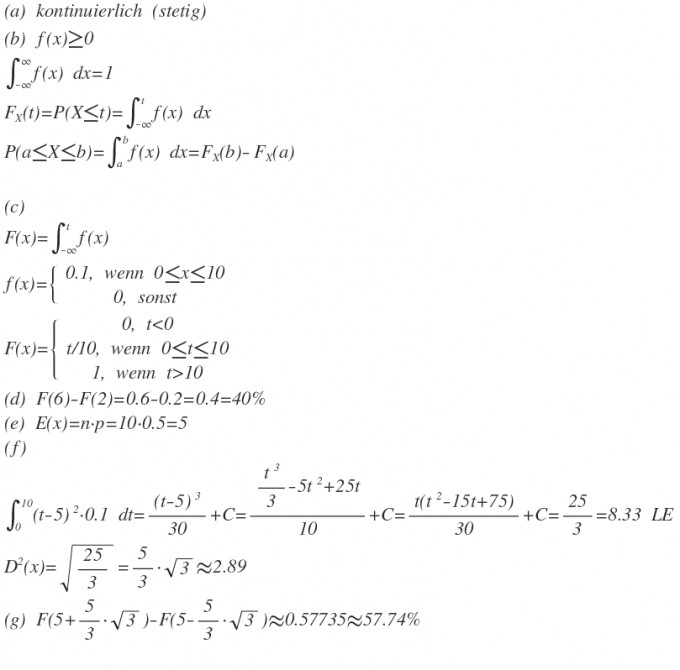 (a) kontinuierlich (stetig)
(b) f(x)≥0
∫_{-∞}^{∞} f(x) dx=1
F_X(t)=P(X≤t)=∫_{-∞}^{t} f(x) dx
P(a≤X≤b)=∫_{a}^{b} f(x) dx=F_X(b)-F_X(a)
(c)
F(x)=∫_{-∞}^{t} f(x)
f(x)={ 0.1, wenn 0≤x≤10
0, sonst
F(x)={ 0, t<0
t/10, wenn 0≤t≤10
1, wenn t>10
(d) F(6)-F(2)=0.6-0.2=0.4=40%
(e) E(x)=n·p=10·0.5=5
(f)
∫_{0}^{10} (t-5)²·0.1 dt=(t-5)³/30+C=(t³/3-5t²+25t)/10+C=t(t²-15t+75)/30+C=25/3=8.33 LE
D²(x)=√(25/3)=5/3·√3≈2.89
(g) F(5+5/3·√3)-F(5-5/3·√3)≈0.57735≈57.74%